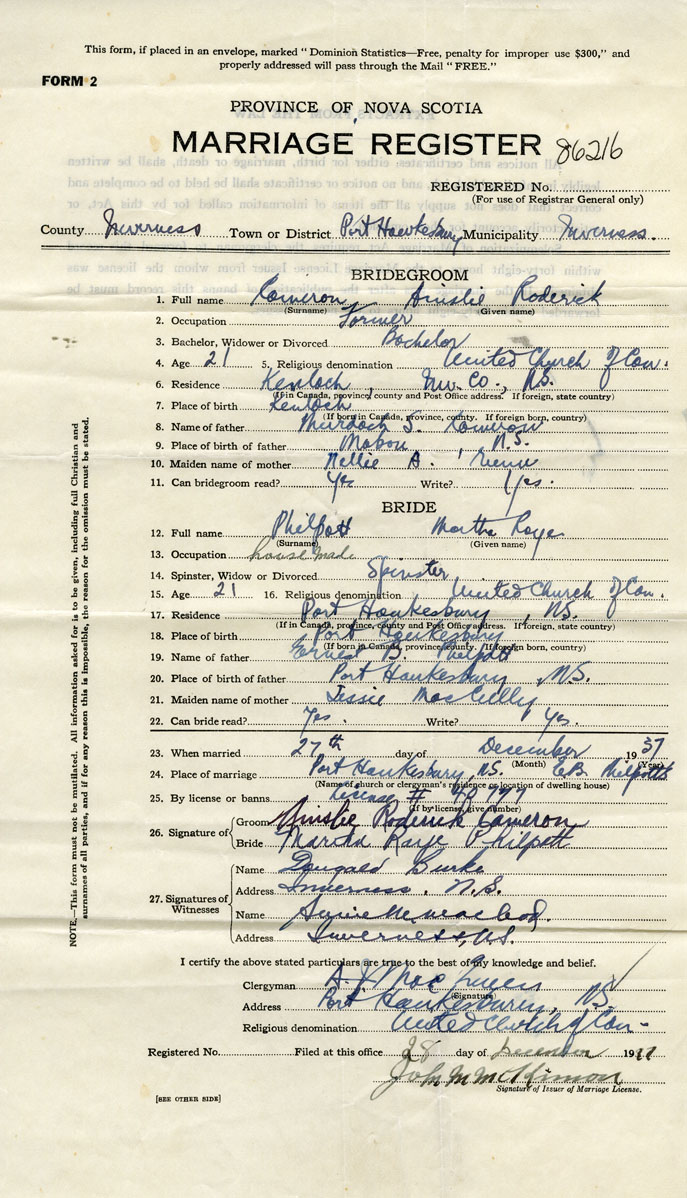 This form, if placed in an envelope, marked "Dominion Statistics—Free, penalty for improper use $300," and
properly addressed will pass through the Mail "FREE."
FORM 2
PROVINCE OF NOVA SCOTIA
MARRIAGE REGISTER 86216
REGISTERED No.
(For use of Registrar General only)
County Inverness Town or District Port Hawkesbury Municipality Inverness.
BRIDEGROOM
1. Full name Cameron Ainslie Roderick
(Surname) (Given name)
2. Occupation Farmer
3. Bachelor, Widower or Divorced Bachelor
4. Age 21 5. Religious denomination United Church of Can.
6. Residence Kenloch, Inv. Co., N.S.
(If in Canada, province, county and Post Office address. If foreign, state country)
7. Place of birth Kenloch
(If born in Canada, province, county. If foreign born, country)
8. Name of father Murdoch S. Cameron
9. Place of birth of father Mabou N.S.
10. Maiden name of mother Nellie A.
11. Can bridegroom read? Yes Write? Yes.
BRIDE
12. Full name Philpott Martha Raye
(Surname) (Given name)
13. Occupation housemade
14. Spinster, Widow or Divorced Spinster
15. Age 21 16. Religious denomination United Church of Can.
17. Residence Port Hawkesbury, N.S.
(If in Canada, province, county and Post Office address. If foreign, state country)
18. Place of birth Port Hawkesbury
(If born in Canada, province, county. If foreign born, country)
19. Name of father Ernest B. Philpott
20. Place of birth of father Port Hawkesbury, N.S.
21. Maiden name of mother Jessie
22. Can bride read? Yes. Write? Yes.
23. When married 27th day of December 1937
(Month) (Year)
24. Place of marriage Port Hawkesbury, N.S. E.B. Philpotts
(Name of church or clergyman's residence or location of dwelling house)
25. By license or banns License #
(If by license, give number)
26. Signature of
Groom Ainslie Roderick Cameron
Bride Martha Raye Philpott
27. Signatures of Witnesses
Name Dougald Burke
Address Inverness, N.S.
Name MacLeod.
Address Inverness, N.S.
I certify the above stated particulars are true to the best of my knowledge and belief.
Clergyman A. J.
(Signature)
Address Port Hawkesbury, N.S.
Religious denomination United Church of Can.
Registered No. Filed at this office 28 day of December 1937
John M McKinnon
Signature of Issuer of Marriage License.
[SEE OTHER SIDE]
NOTE.—This form must not be mutilated. All information asked for is to be given, including full Christian and
surnames of all parties, and if for any reason this is impossible, the reason for the omission must be stated.